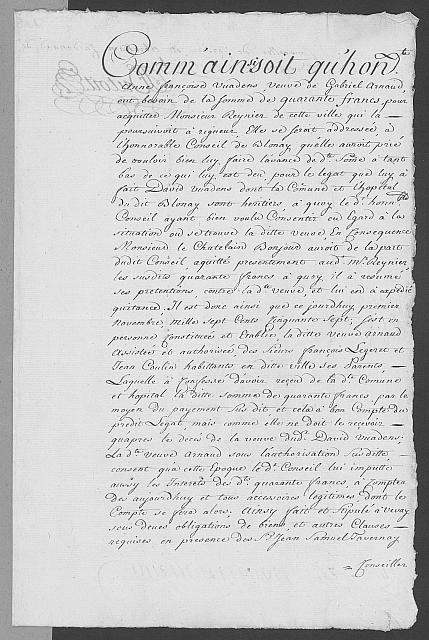 Comm'ainsi soit qu'hon.te
Anne françoise Vuadens Veuve de Gabriel Arnaud,
eut besoin de la somme de quarante francs, pour
acquitter Monsieur Reynier de cette ville qui la
poursuivoit à rigueur. Elle se seroit addressée à
l'honnorable Conseil de Blonay, quelle auroit prié
de vouloir bien luy faire l'avance de d.te Somē à tant
bas de ce qui luy est deu pour le légat que luy a
fait David Vuadens dont la Comūne et l'hopital
du dit Blonay sont heritiers, à quoy le d.t honn.ble
Conseil ayant bien voulu Consentir eu Egard à la
situation où se trouve la ditte veuve En Consequence
Monsieur le Chatelain Bonjour auroit de la part
dudit Conseil aquitté presentement aud. Mr. Reynier
les susdits quarante francs à quoy, il a resumé
ses pretentions contre la d.te veuve, et lui en a expedié
quittance. Il est donc ainsi que ce jourdhuy, premier
Novembre, mille sept Cents Cinquante Sept, s'est en
personne Constituée et Etablie la ditte veuve Arnaud
Assistée et authorisée, des Sieurs françois Légeret et
Jean Coulin habittants en ditte ville ses Parents,
Laquelle à Confessée d'avoir reçeu de la d.te Comune
et hopital la ditte Somme de quarante francs, par le
moyen du payement Sus dit et cela à bon Compte du
prédit Légat, mais comme elle ne doit le reçevoir
qu'apres le deces de la veuve dud.t David Vuadens,
La d.te veuve Arnaud sous l'authorisation Sus ditte,
consent qu'à cette Epoque le d.t Conseil lui imputte
aussy les Interets des d.ts quarante francs, à Compter
des aujourdhuy et tous accessoires légitimes dont le
Compte se fera alors. Ainsy fait et Stipulé à Vevay
sous deues obligations de biens, et autres Clauses
requises en présence des S.rs Jean Samuel Tavernay
= Conseiller